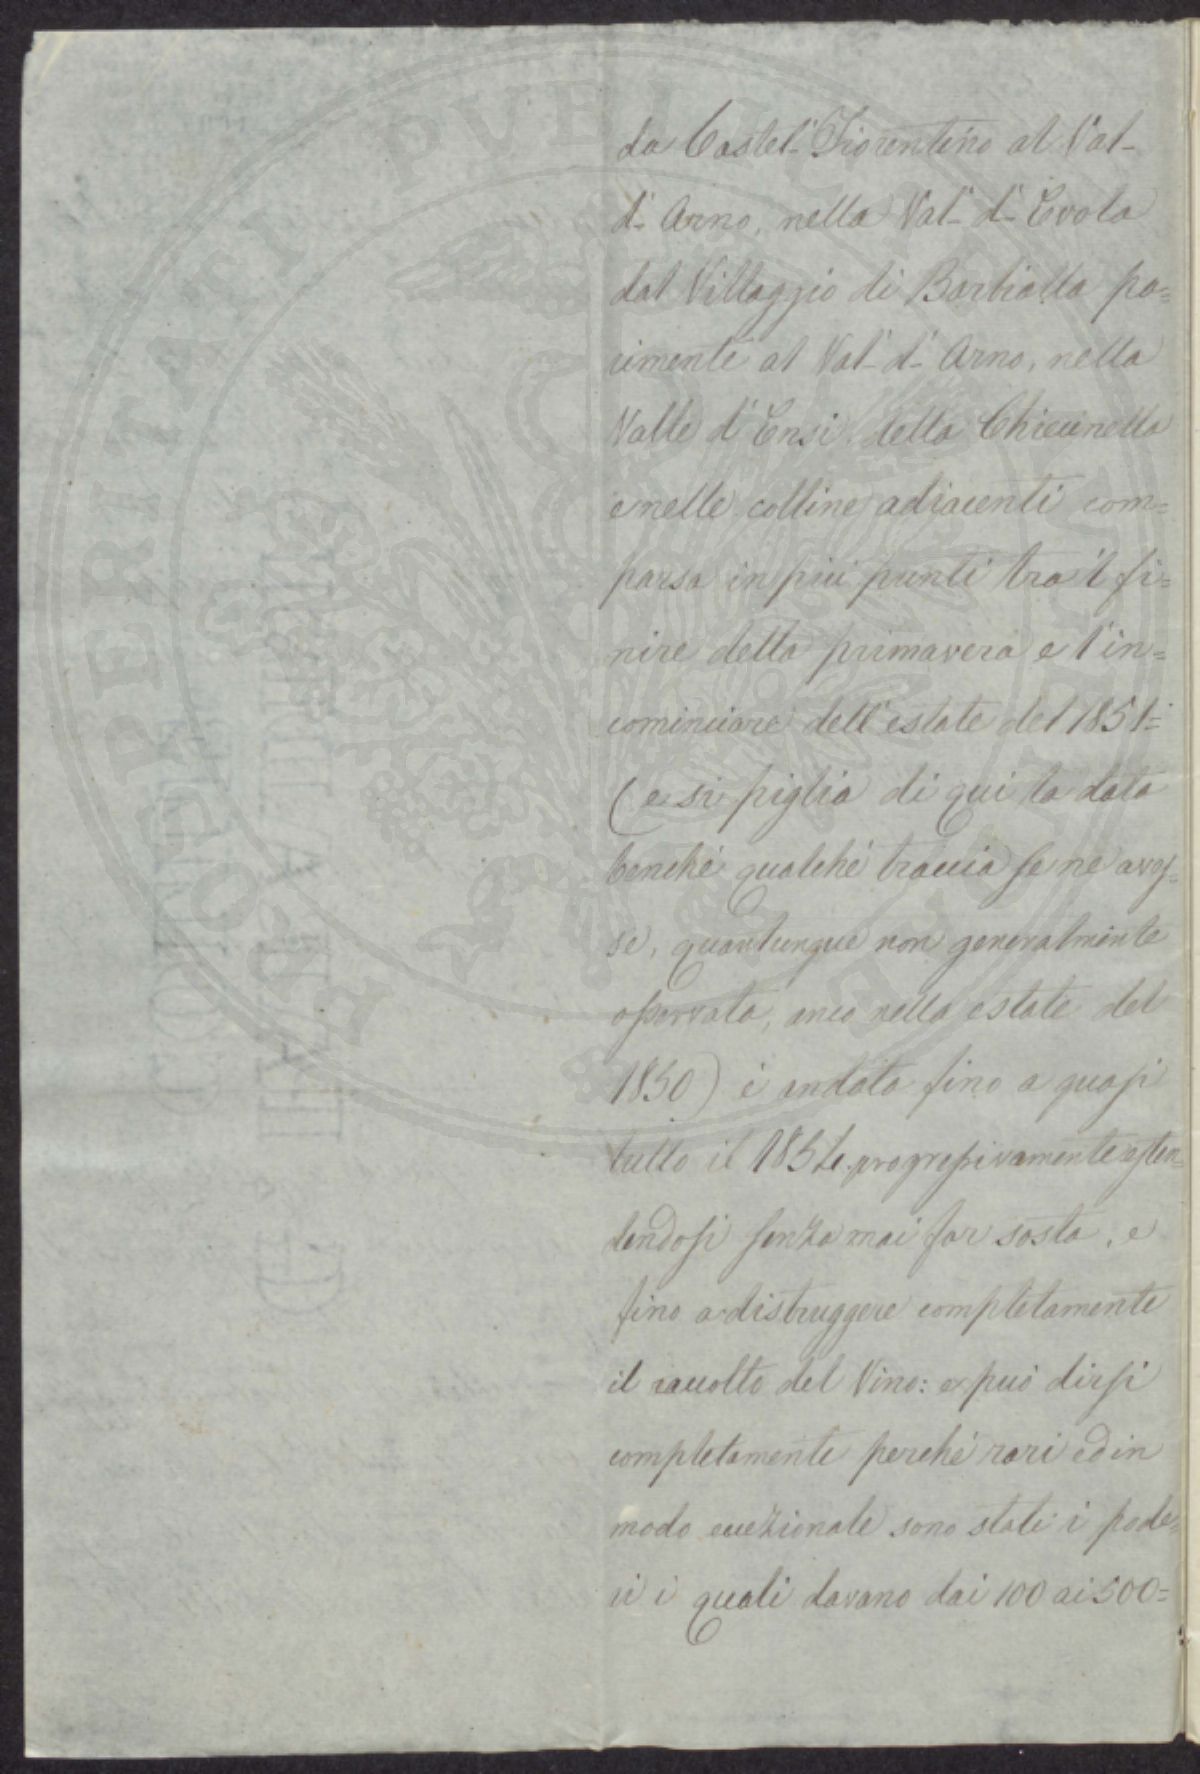 PROSPERITATI PVBLICAE
da Castel-Fiorentino al Val-
d'-Arno, nella Val-d'-Evola
dal Villaggio di Barbialla pa=
rimente al Val-d'-Arno, nella
Valle d'Ensi della Chiecinella
e nelle colline adiacenti com=
parsa in piú punti tra 'l fi=
nire della primavera e l'in=
cominciare dell'estate del 1851=
(e si piglia di qui la data
benché qualche traccia se ne aves=
se, quantunque non generalmente
osservata, anco nella estate del
1850) è andata fino a quasi
tutto il 1854 progressivamente esten
dendosi senza mai far sosta, e
fino a distruggere completamente
il raccolto del Vino: e può dirsi
completamente perché rari ed in
modo eccezionale sono stati i pode=
ri i quali davano dai 100 ai 500=